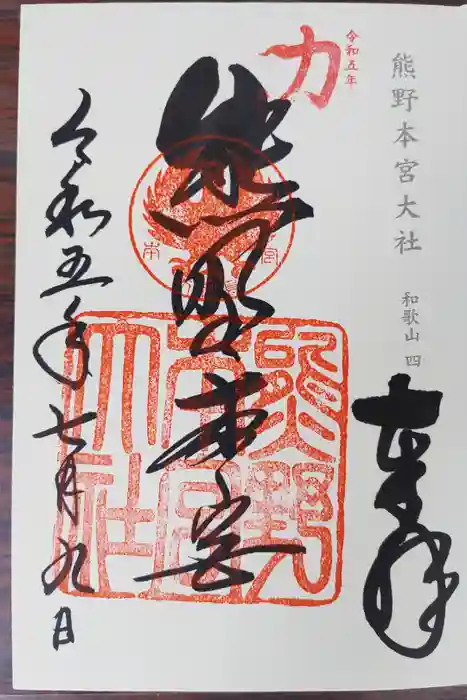 熊野本宮大社
和歌山 四
奉拝
力
令和五年
熊野本宮
本宮
熊野
本宮
大社
令和五年七月九日